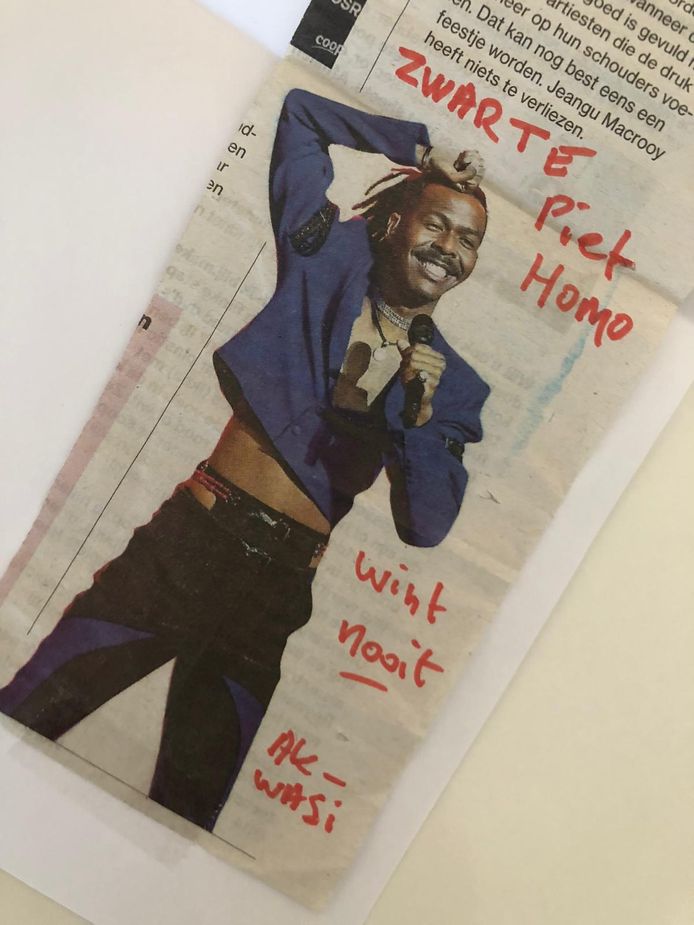 wanneer
goed is gevuld
artiesten die de druk
meer op hun schouders voe-
en. Dat kan nog best eens een
feestje worden. Jeangu Macrooy
heeft niets te verliezen.
ZWARTE
Piet
Homo
en
en
n
wint
nooit
AK-
WASi